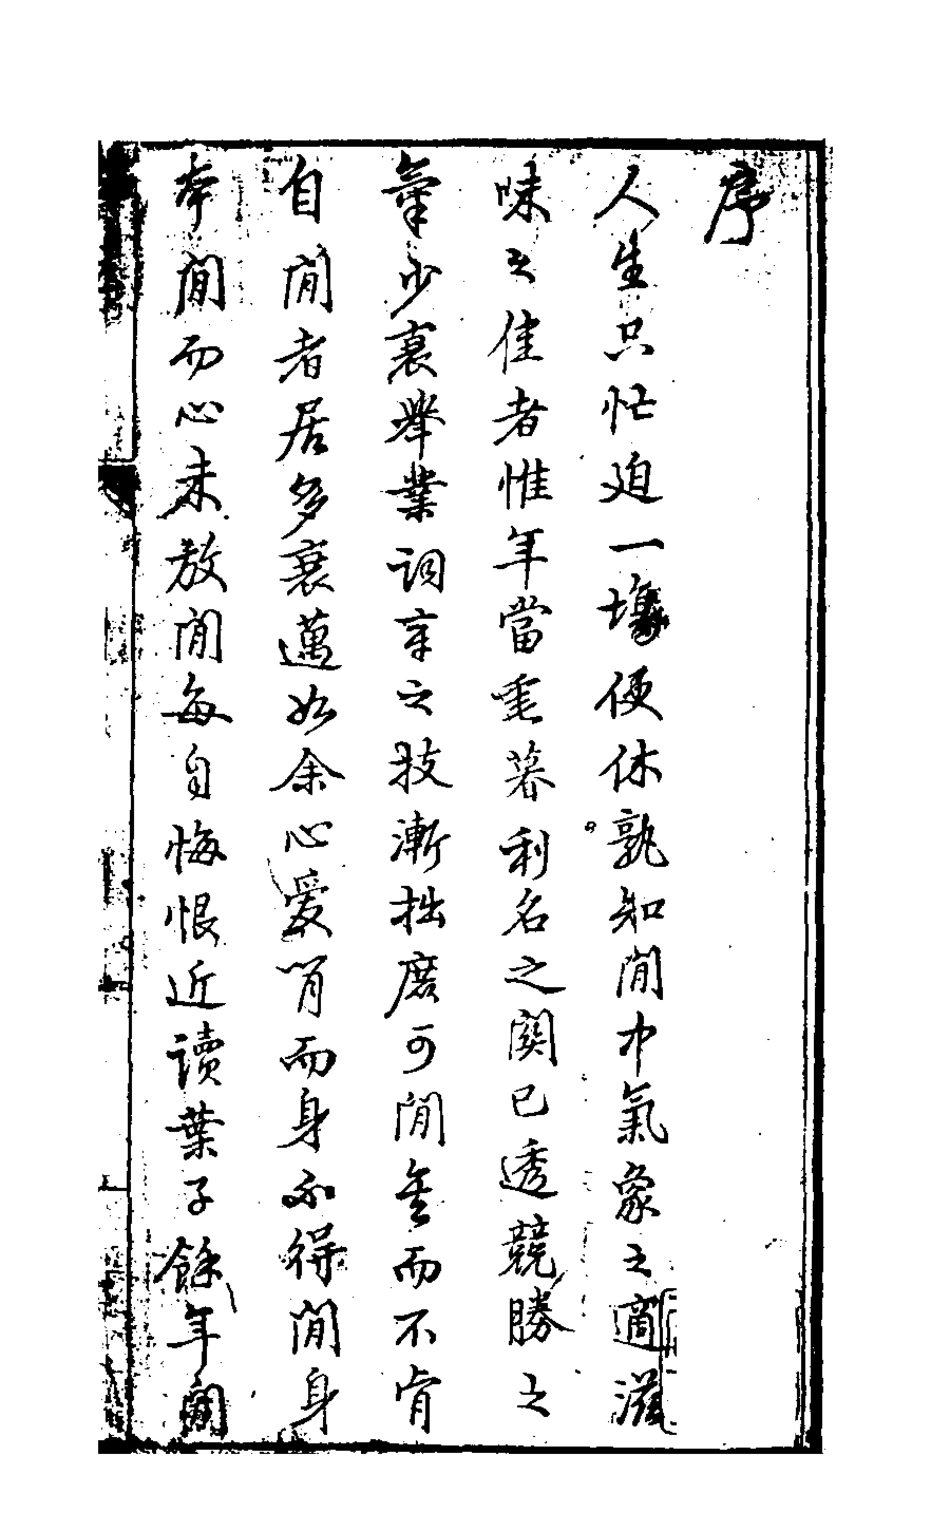 序
人生只忙迫一塲便休孰知閒中氣象之適滋
味之佳者惟年當耄暮利名之關已透競勝之
氣少衰舉業詞章之技漸拙庶可閒矣而不肯
自閒者居多衰邁如余心愛閒而身不得閒身
本閒而心未敢閒每自悔恨近讀葉子餘年閒